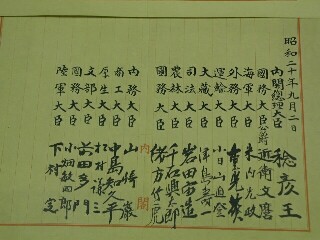 昭和二十年九月二日
內閣總理大臣 稔彦王
國務大臣公爵 近衛文麿
海軍大臣 米內光政
外務大臣 重光葵
運輸大臣 小日山直登
大藏大臣 津島壽一
司法大臣 岩田宙造
農林大臣 千石興太郎
國務大臣 緒方竹虎
內閣
內務大臣 山崎巖
商工大臣 中島知久平
厚生大臣 松村謙三
文部大臣 前田多門
國務大臣 小畑敏四郎
陸軍大臣 下村定